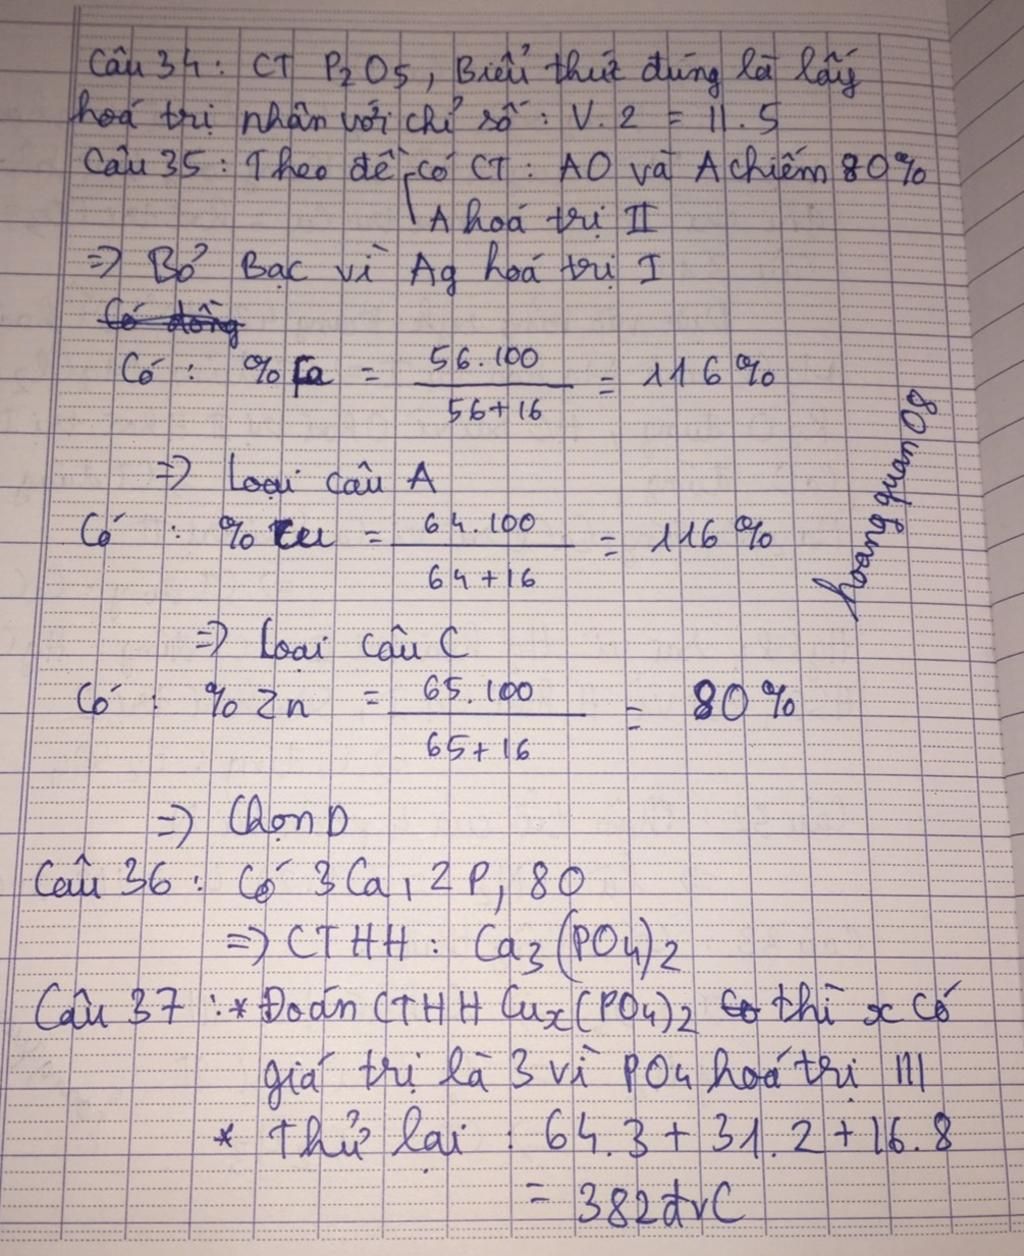 Câu 34: CT P2O5, Biểu thức đúng là lấy
hoá trị nhân với chỉ số: V.2 = II.5
Câu 35: Theo đề có CT: AO và A chiếm 80%
A hoá trị II
=> Bỏ Bạc vì Ag hoá trị I
Có đồng
Có: % Fa = 56.100 / 56+16 = 116%
=> Loại câu A
Có: % Cu = 64.100 / 64+16 = 116%
=> Loại câu C
Có: % Zn = 65.100 / 65+16 = 80%
=> Chọn D
Câu 36: Có 3Ca, 2P, 8O
=> CTHH: Ca3(PO4)2
Câu 37: * Đoán CTHH Cux(PO4)2 thì x có
giá trị là 3 vì PO4 hoá trị III
* Thử lại: 64.3 + 31.2 + 16.8
= 382đvC
hoangquan08